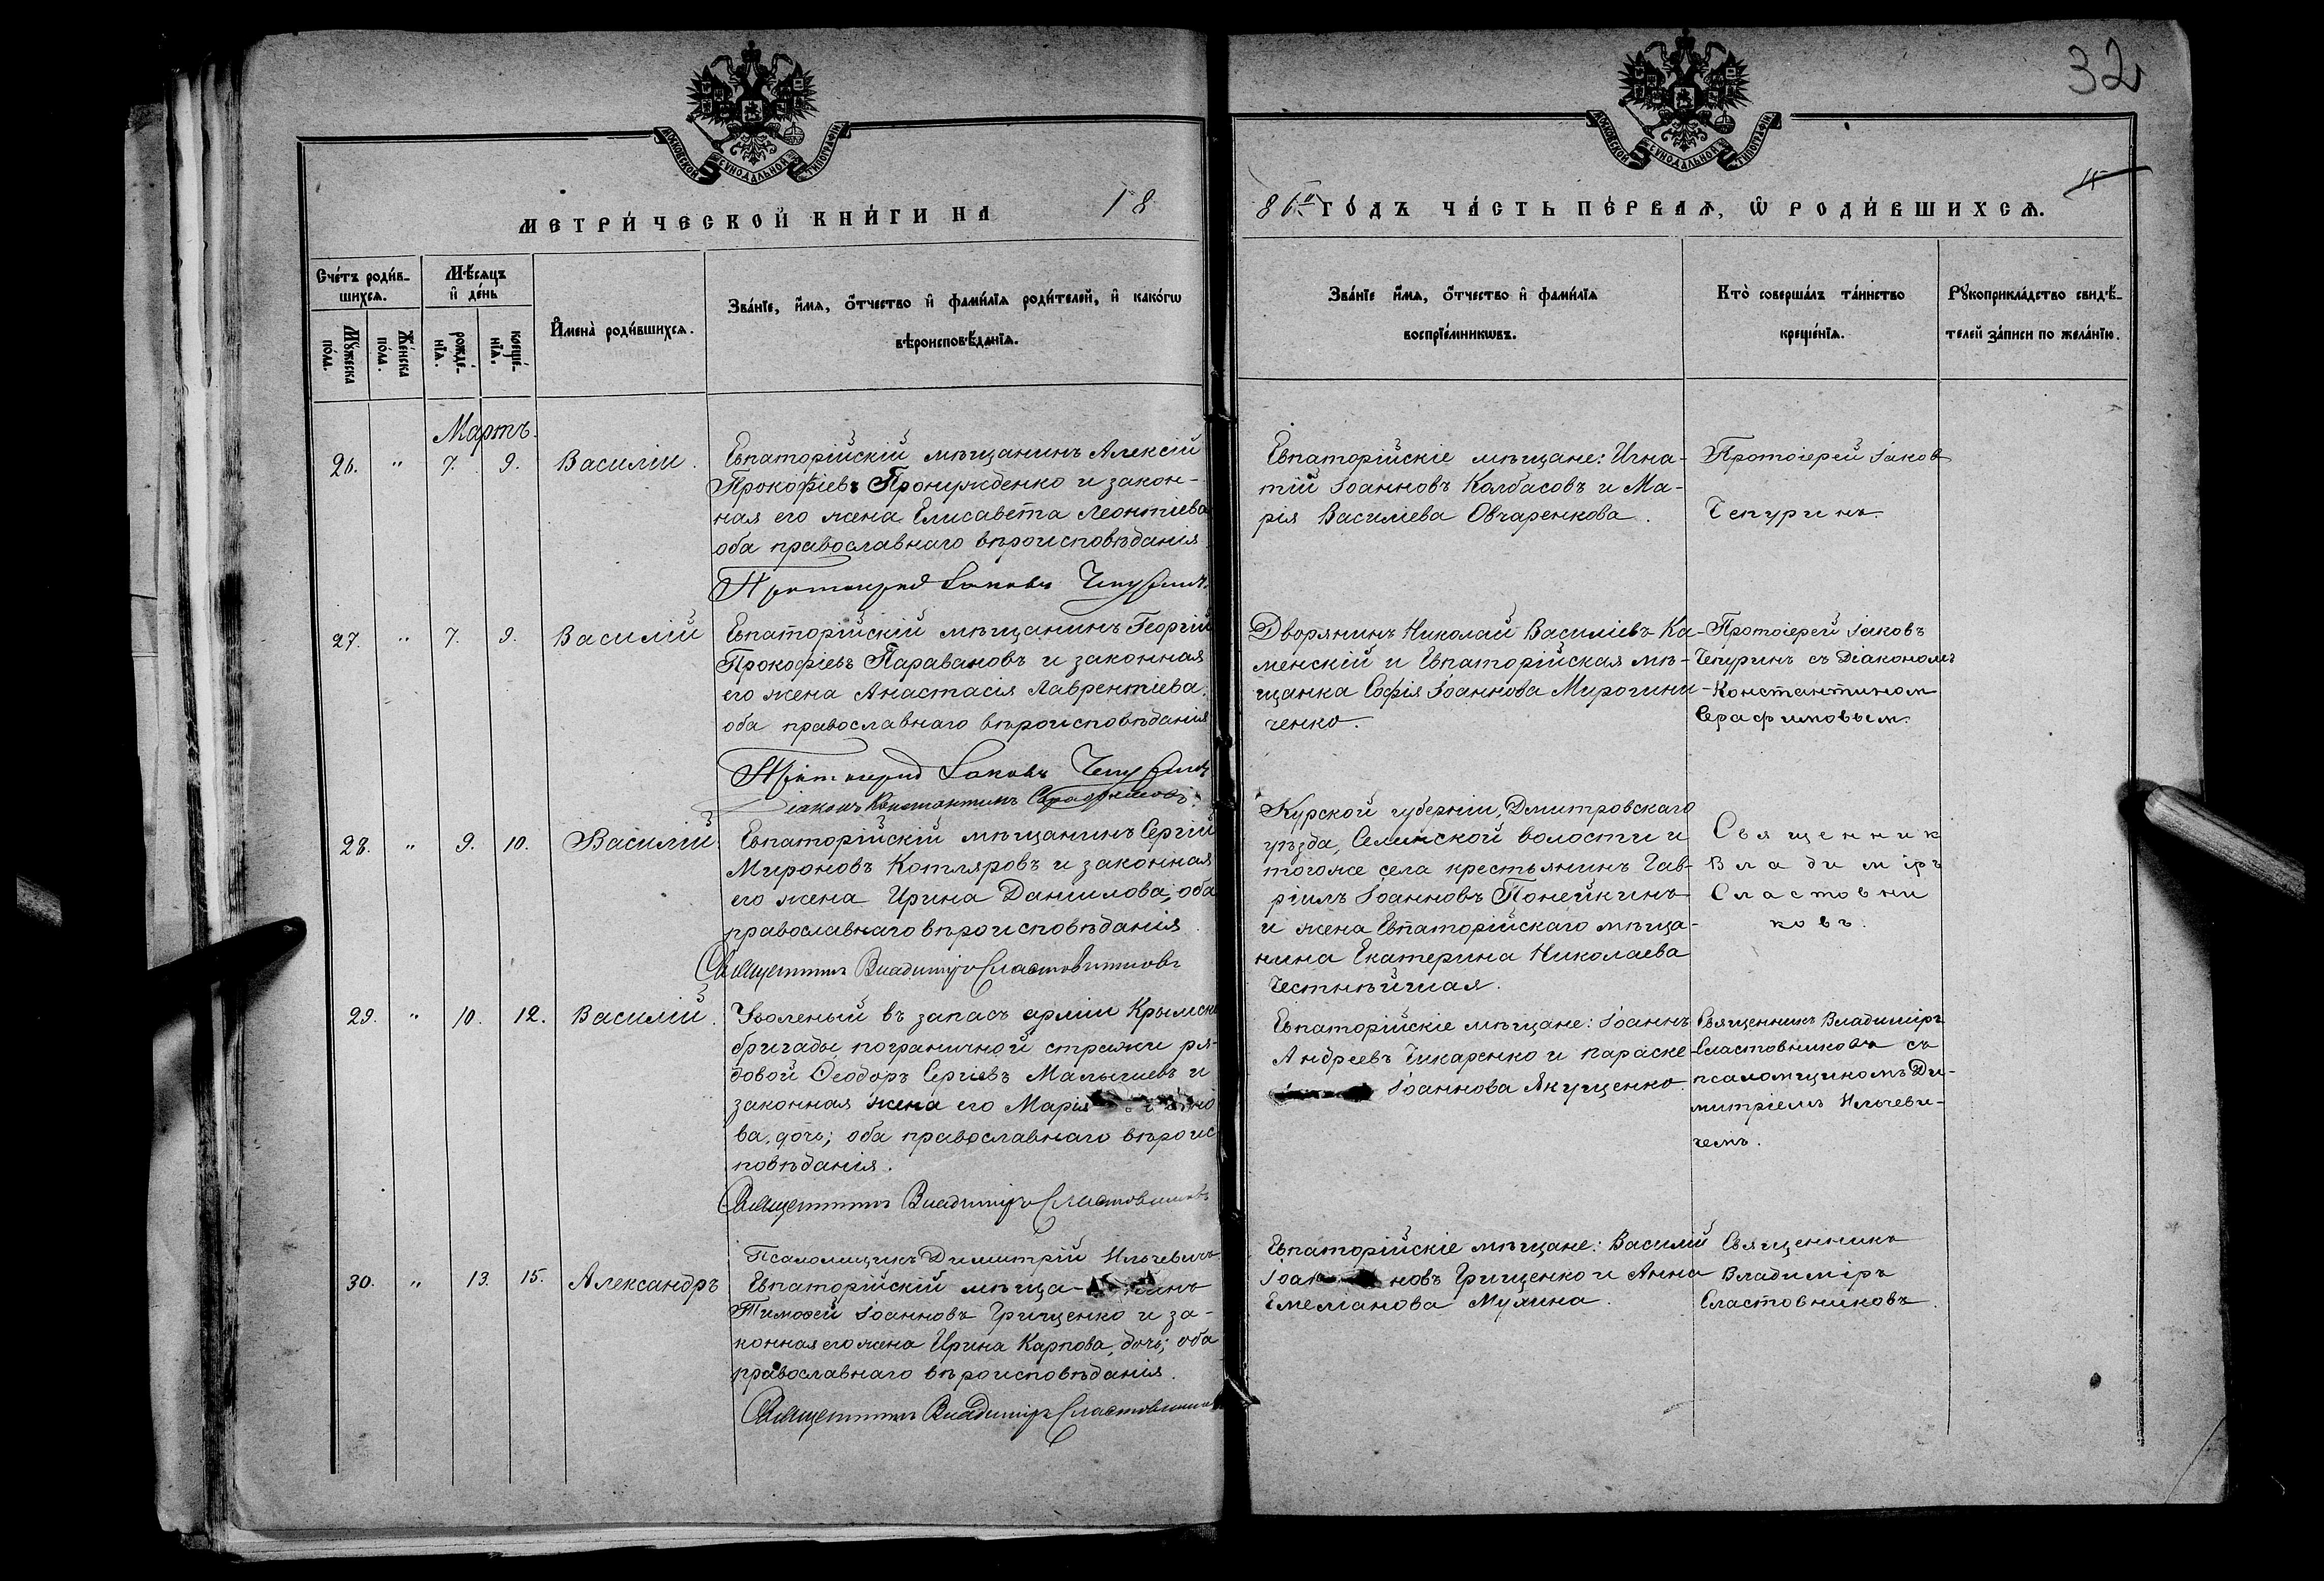 32
МОСКОВСКОЙ СУНОДАЛЬНОЙ ТИПОГРАФІИ
МОСКОВСКОЙ СУНОДАЛЬНОЙ ТИПОГРАФІИ
МЕТРИ́ЧЕСКОЙ КНИ́ГИ НА 18
86го ГО́ДЪ ЧА́СТЬ ПЕ́РВАѦ, Ѡ РОДИ́ВШИХСѦ.
Сче́тъ роди́в-
шихсѧ.
Мꙋ́жеска
по́ла.
Же́нска
по́ла.
Мѣ́сѧцъ
и҆ де́нь
рожде́-
нїѧ.
креще́-
нїѧ.
И҆мена̀ роди́вшихсѧ.
Зва́нїе, и҆́мѧ, ѻ҆́тчество и҆ фами́лїѧ роди́телей, и҆ како́гѡ
вѣроисповѣ́данїѧ.
Зва́нїе и҆́мѧ, ѻ҆́тчество и҆ фами́лїѧ
воспрїе́мникѡвъ.
Кто̀ соверша́лъ та́инство
креще́нїѧ.
Рꙋкоприкла́дство свидѣ́-
телей за́писи по жела́нїю.
Мартъ.
26. " 7. 9. Василіи.
Евпаторійскій мѣщанинъ Алексій
Прокофіевъ и закон-
ная его жена Елисавета Леонтіева
оба православнаго вѣроисповѣданія
Протоіерей Іаковъ Чепуринъ.
Евпаторійскіе мѣщане: Игна-
тій Іоанновъ Колбасовъ и Ма-
рія Василіева Овчаренкова.
Протоіерей Іаков
Чепуринъ.
27. " 7. 9. Василій
Евпаторійскій мѣщанинъ Георгій
Прокофіевъ Параваковъ и законная
его жена Анастасія Лаврентіева.
оба православнаго вѣроисповѣданія
Протоіерей Іаковъ Чепуринъ
Діаконъ Константинъ Серафимовъ.
Дворянинъ Николай Василіевъ Ка-
менскій и Евпаторійская мѣ-
щанка Софія Іоаннова Мирогини
ченко.
Протоіерей Іаковъ
Чепуринъ съ Діакономъ
Константином
Серафимовым.
28. " 9. 10. Василій.
Евпаторійскій мѣщанинъ Сергій
Мироновъ Котляровъ и законная
его жена Ирина Даніилова; оба
православнаго вѣроисповѣданія.
Священникъ Владиміръ Сластовниковъ
Курской губерніи, Дмитровскаго
уѣзда, Селинской волости и
тогоже села крестьянинъ Гав-
ріилъ Іоанновъ Понейкинъ
и жена Евпаторійскаго мѣща-
нина Екатерина Николаева
Честнѣйшая.
Священник
Владиміръ
Сластовни
ковъ.
29. " 10. 12. Василій.
Уволеный въ запасъ арміи Крымск
бригады пограничной стражи ря-
довой Ѳеодоръ Сергіевъ Малышевъ и
законная жена его Марія
ва, дочь; оба православнаго вѣроис
повѣданія.
Священникъ Владиміръ Сластовниковъ
Псаломщикъ Димитрій Ильчевичъ
Евпаторійскіе мѣщане: Іоаннъ
Андреевъ Чикаренко и Параске
Іоаннова Якущенко.
Священникъ Владиміръ
Сластовниковъ съ
псаломщикомъ Ди-
митріемъ Ильчеви-
чемъ.
30. " 13. 15. Александръ
Евпаторійскій мѣща- нинъ
Тимоѳей Іоанновъ Грищенко и за-
конная его жена Ирина Карпова, дочь; оба
православнаго вѣроисповѣданія.
Священникъ Владиміръ Сластовников
Евпаторійскіе мѣщане: Василій
Іоан новъ Грищенко и Анна
Емеліанова Мухина.
Священникъ
Владиміръ
Сластовниковъ.